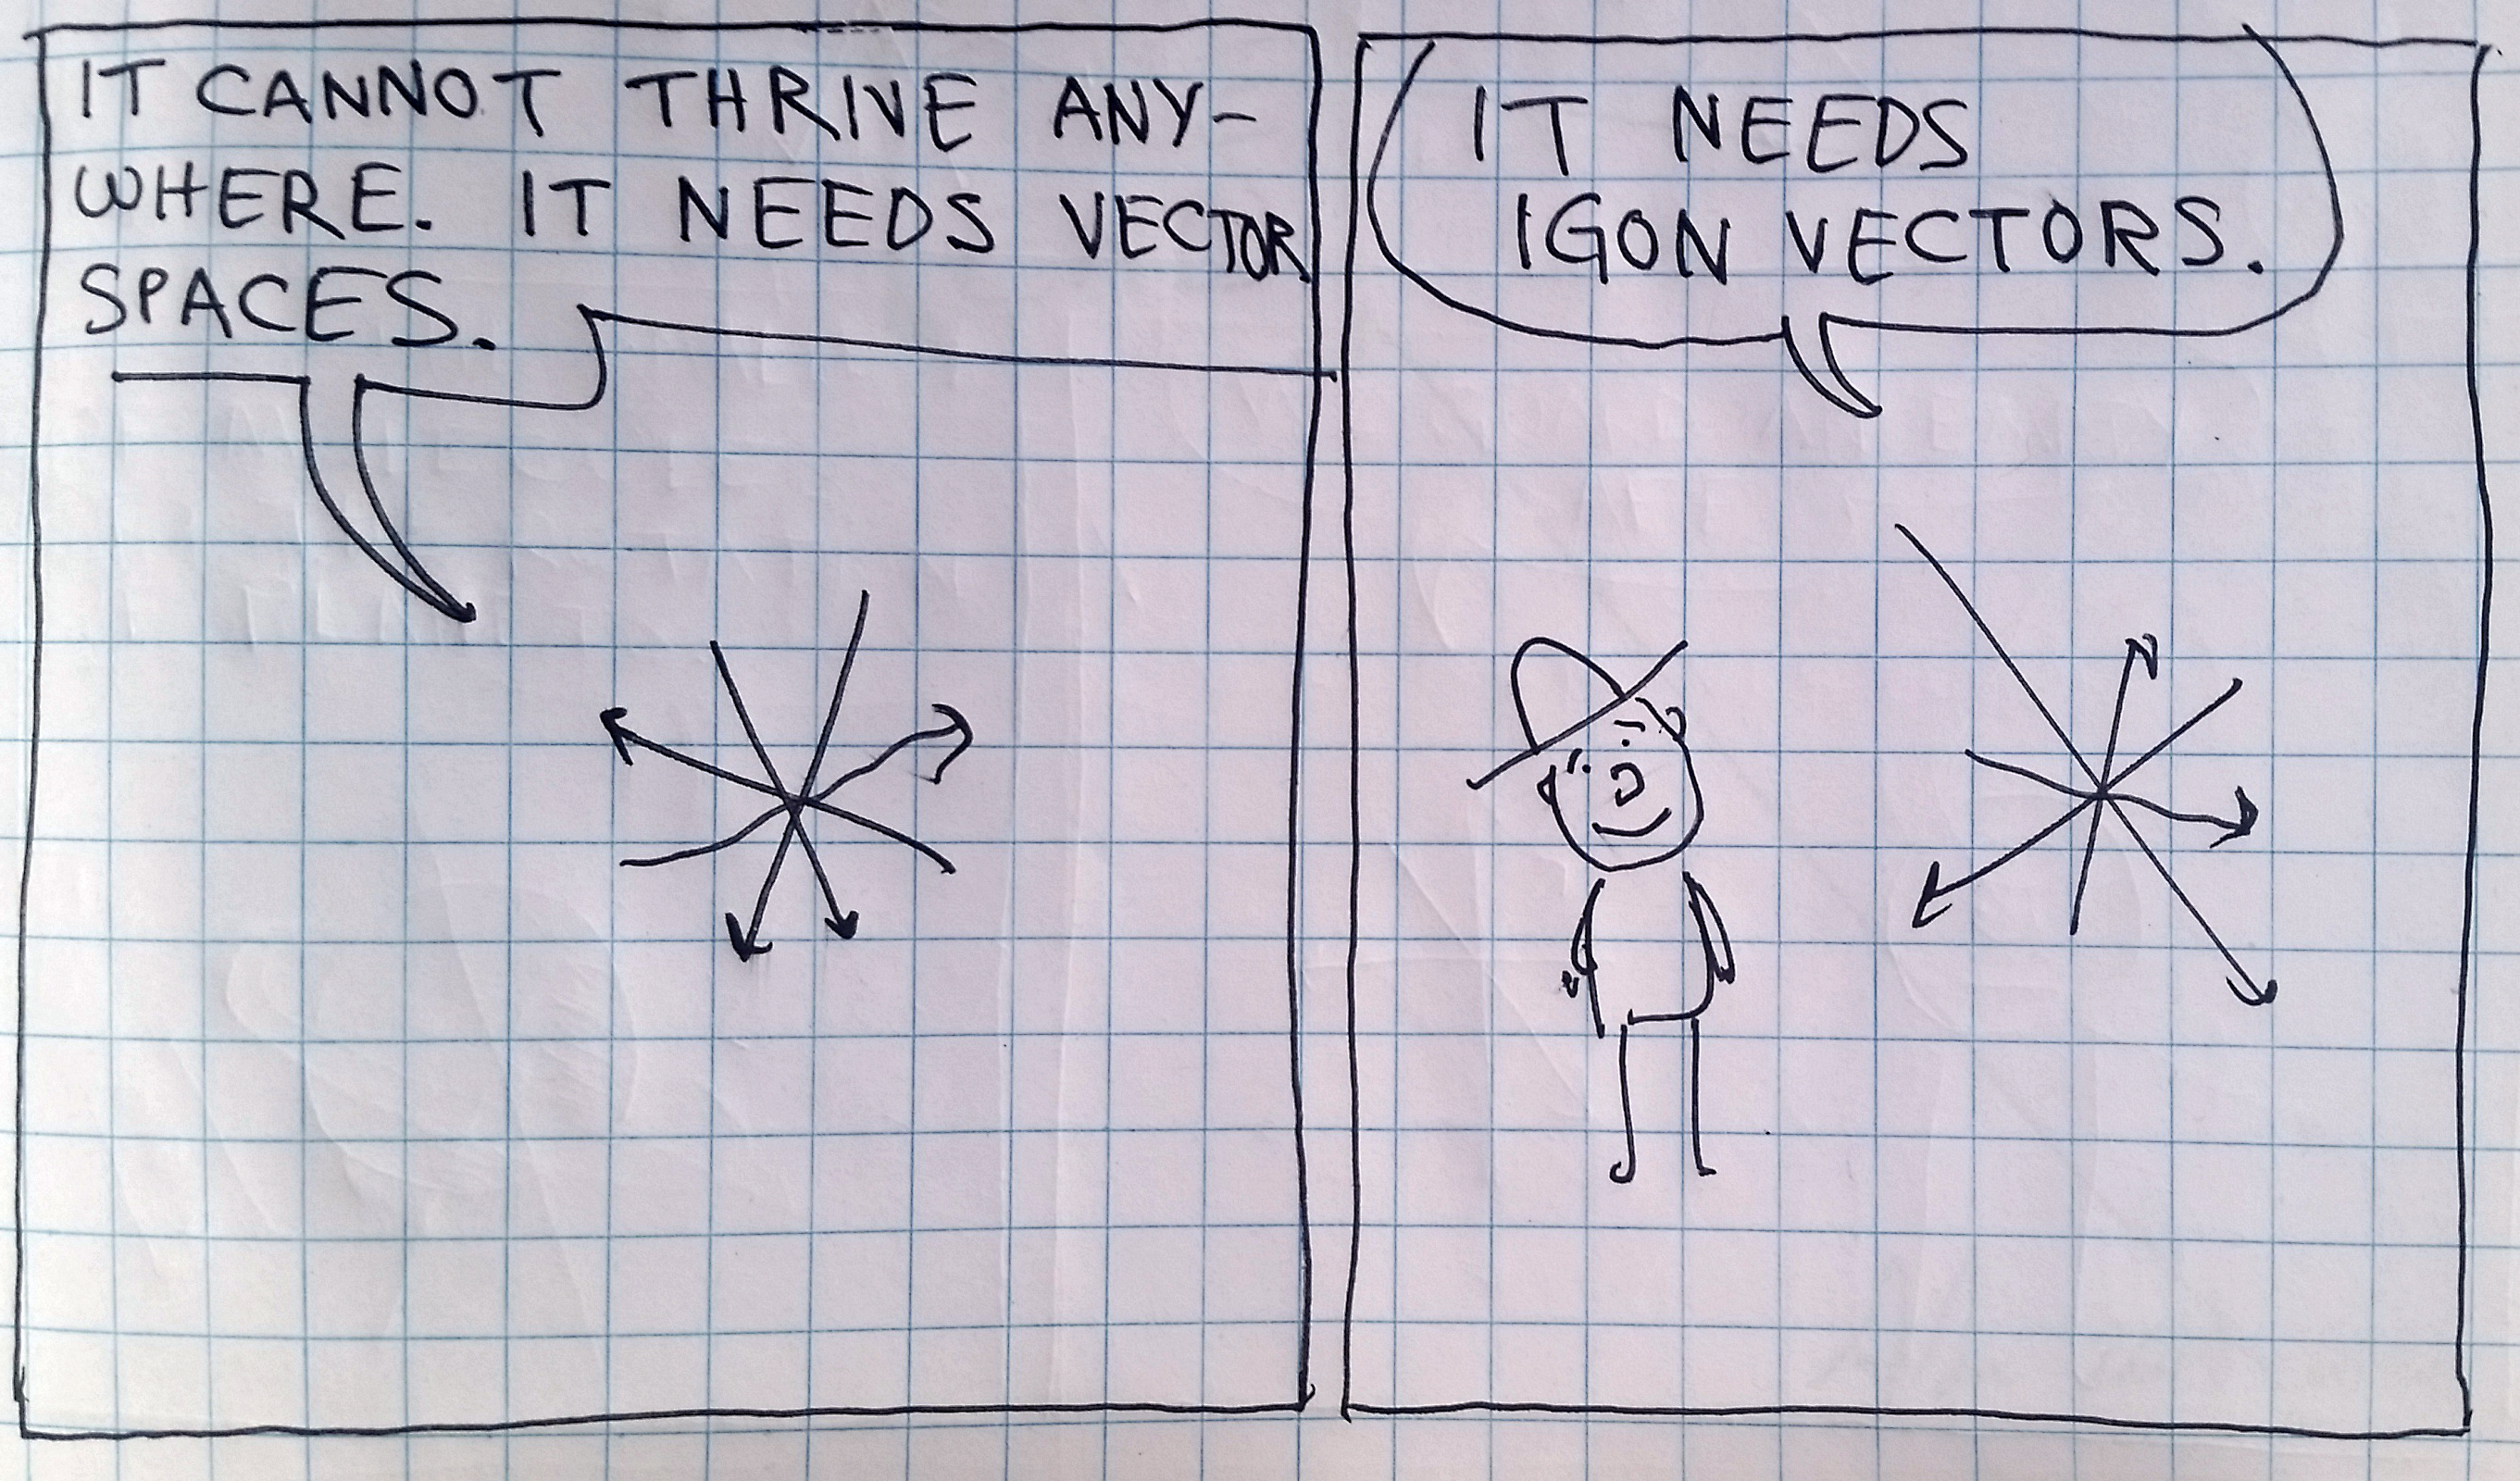 IT CANNOT THRIVE ANY-
WHERE. IT NEEDS VECTOR
SPACES.
IT NEEDS
IGON VECTORS.